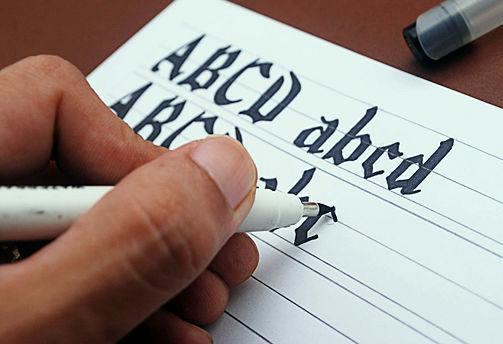 ABCD abcd
ABC